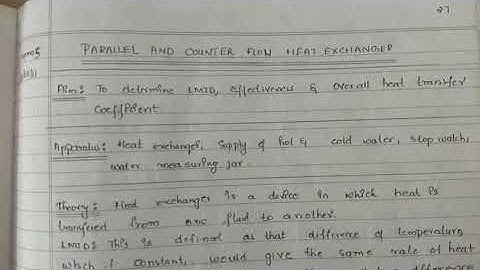 27
PARALLEL AND COUNTER FLOW HEAT EXCHANGER
Aim: To determine LMTD, effectiveness & overall heat transfer
coefficient
Apparatus: Heat exchanger, Supply of hot & cold water, stop watch,
water measuring jar.
Theory: Heat exchanger is a device in which heat is
transfered from one fluid to another.
LMTD: This is defined as that difference of temperature
which if constant, would give the same rate of heat
difference